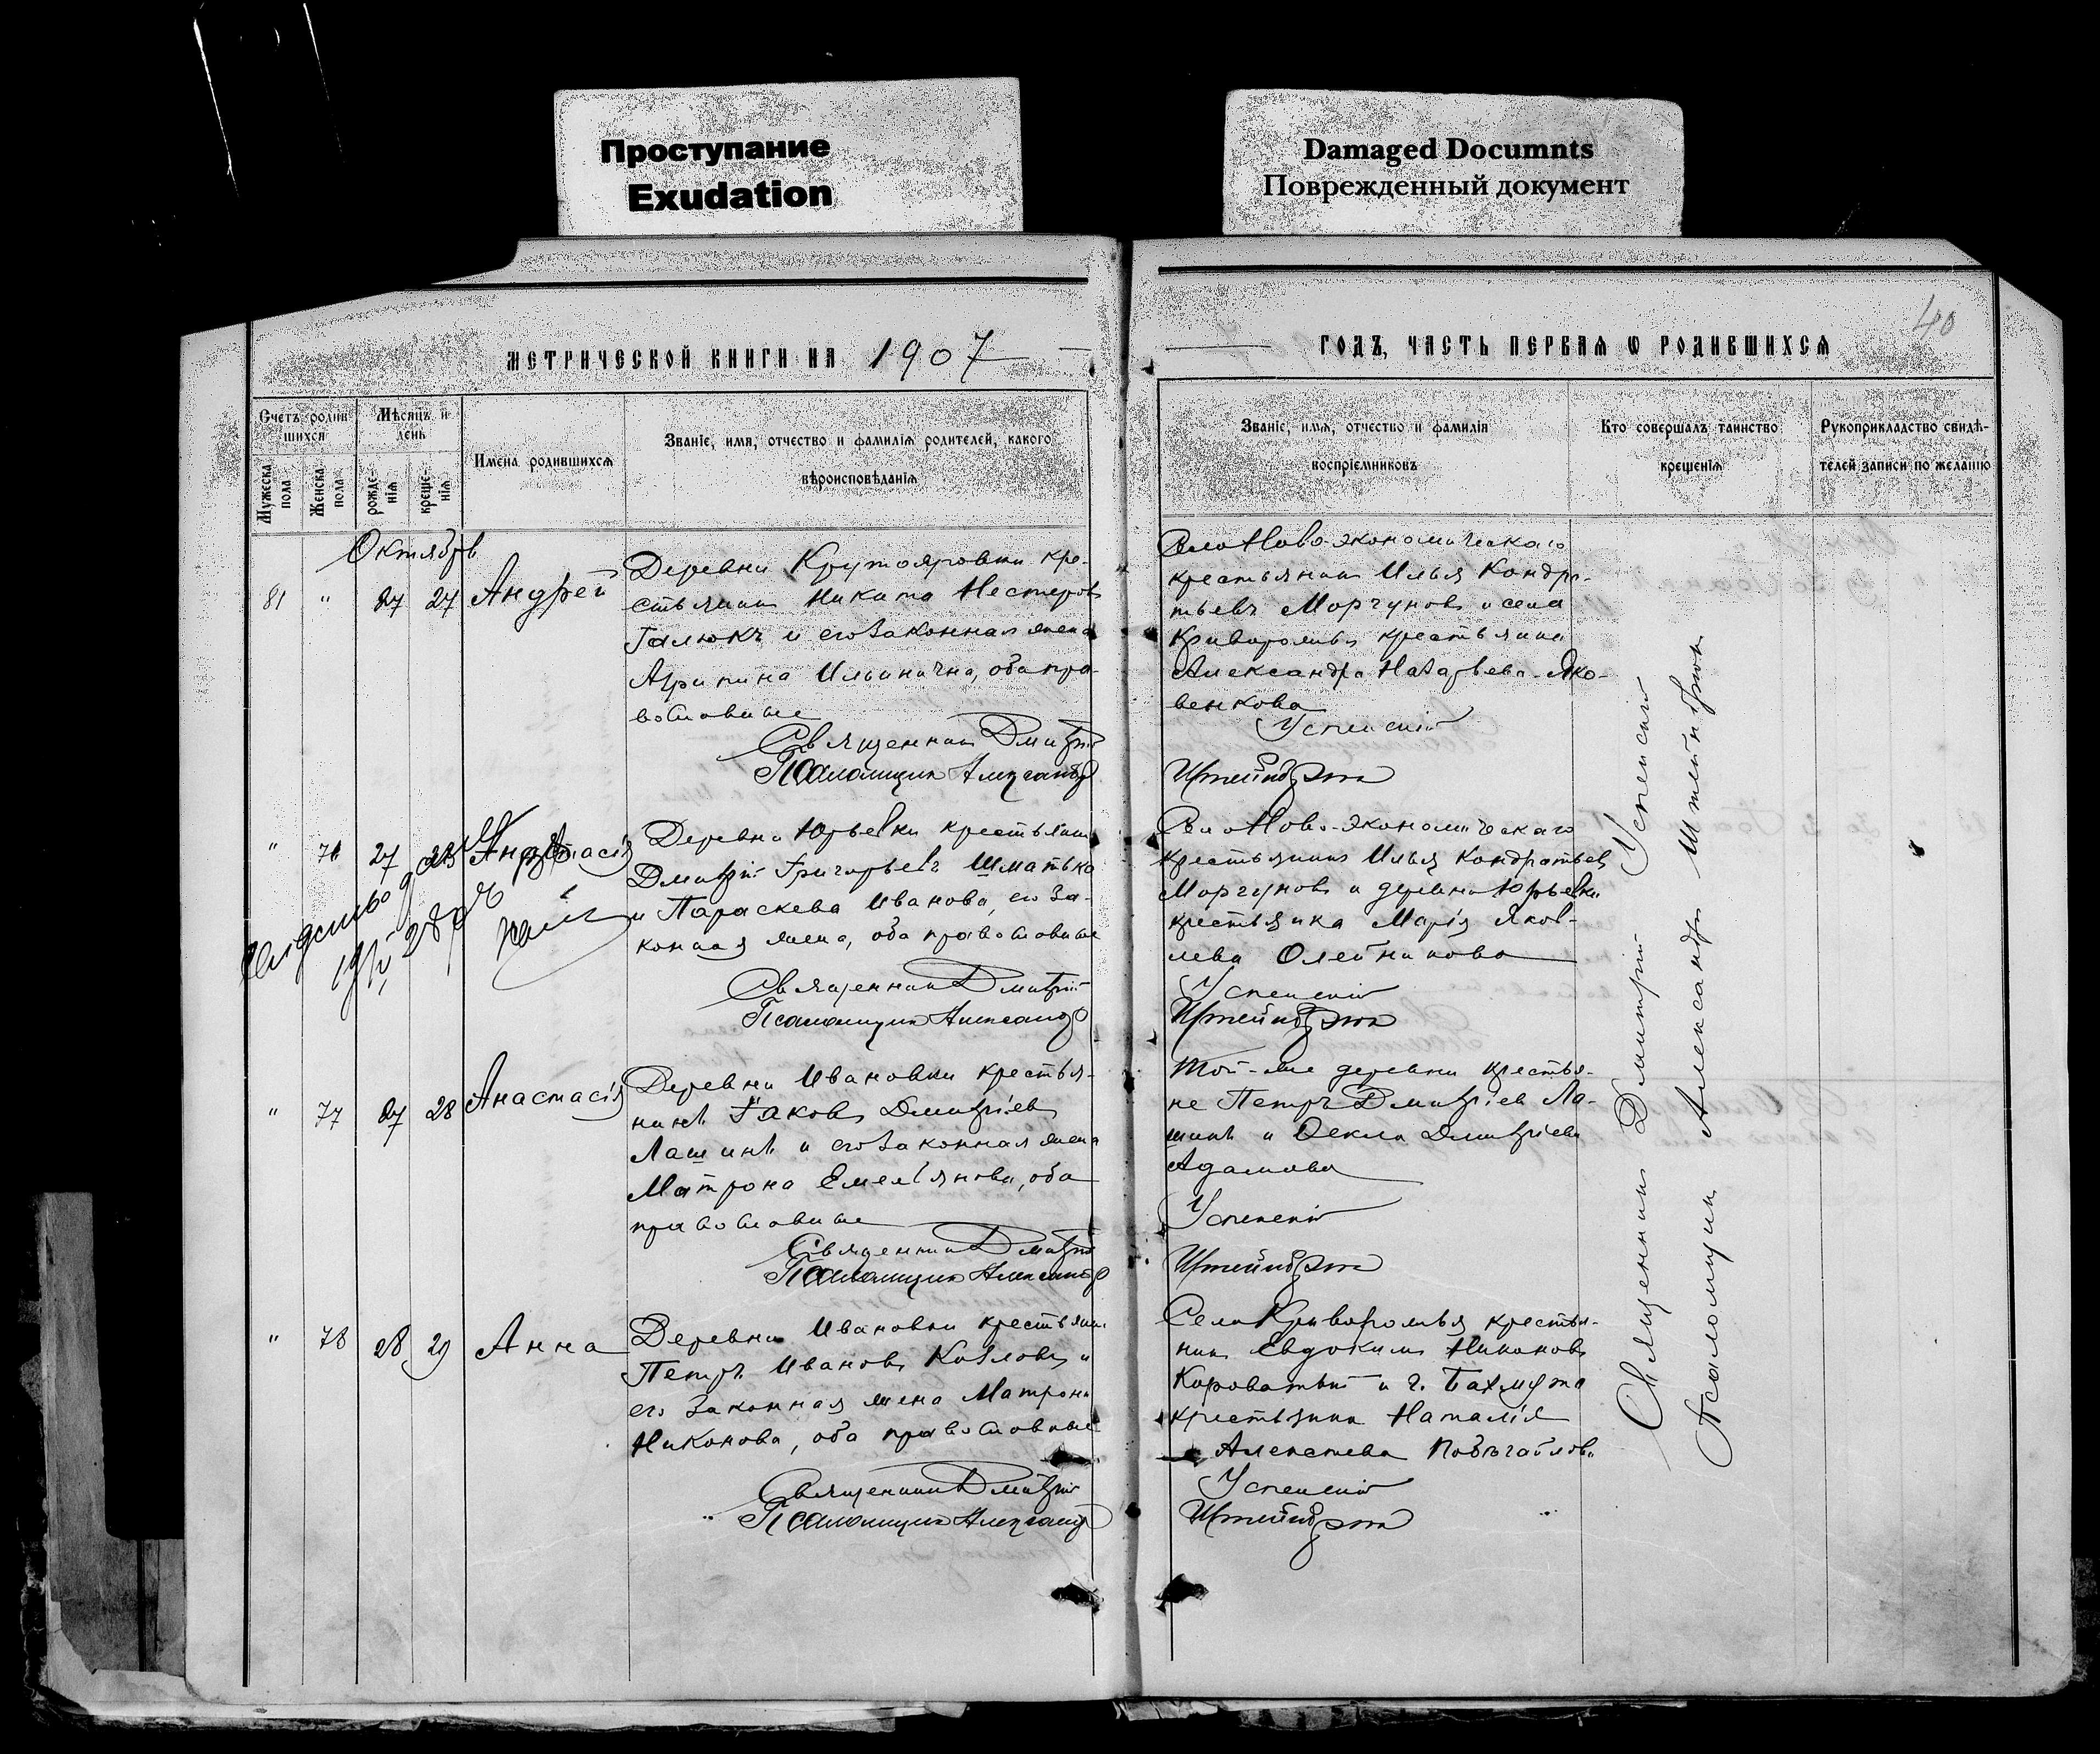 Проступание
Exudation
Damaged Documnts
Поврежденный документ
МЕТРИЧЕСКОЙ КНИГИ НА 1907
ГОДЪ, ЧАСТЬ ПЕРВАЯ О РОДИВШИХСЯ
40
Счетъ родив
шихся
Мѣсяцъ и
день
Мужеска
пола
Женска
пола
рожде-
нія
креще-
нія
Имена родившихся
Званіе, имя, отчество и фамилія родителей, какого
вѣроисповѣданія
Званіе, имя, отчество и фамилія
воспріемниковъ
Кто совершалъ таинство
крещенія
Рукоприкладство свидѣ-
телей записи по желанію
Октябрь
81 " 27 27 Андрей
Деревни Крутояровки кре-
стьянинъ Никита Нестеровъ
Галюкъ и его законная жена
Агрипина Ильинична, оба пра-
вославные
Священникъ Дмитрій
Псаломщикъ Александр
Села Ново-экономическаго
крестьянинъ Илья Кондра-
тьевъ Моргуновъ и села
Криворожья крестьянка
Александра Назарьева Яко-
венкова
Успенскій
Штейнбрюк
" 76 27 28 Анастасія
Деревни Юрьевки крестьянинъ
Дмитрій Григорьевъ Шматько
и Параскева Иванова, его за-
конная жена, оба православные
Священникъ Дмитрій
Псаломщикъ Александр
Села Ново-Экономическаго
крестьянинъ Илья Кондратьевъ
Моргуновъ и деревни Юрьевки
крестьянка Марія Яков-
лева Олейникова
Успенскій
Штейнбрюк
" 77 27 28 Анастасія
Деревни Ивановки крестья-
нинъ Іаковъ Дмитріевъ
Лашинъ и его законная жена
Матрона Емельянова, оба
православные
Священникъ Дмитрій
Псаломщикъ Александр
Той-же деревни крестья-
не Петръ Дмитріев Ла-
шинъ и Ѳекла Дмитріева
Адамова
Успенскій
Штейнбрюк
" 78 28 29 Анна
Деревни Ивановки крестьянинъ
Петръ Ивановъ Козловъ и
его законная жена Матрона
Никонова, оба православные
Священникъ Дмитрій
Псаломщикъ Александр
Села Криворожья крестья-
нинъ Евдокимъ Никоновъ
Короватый и г. Бахмута
крестьянка Наталія
Алексеева
Успенскій
Штейнбрюк
Священникъ Дмитрій Успенскій
Псаломщикъ Александръ Штейнбрюк